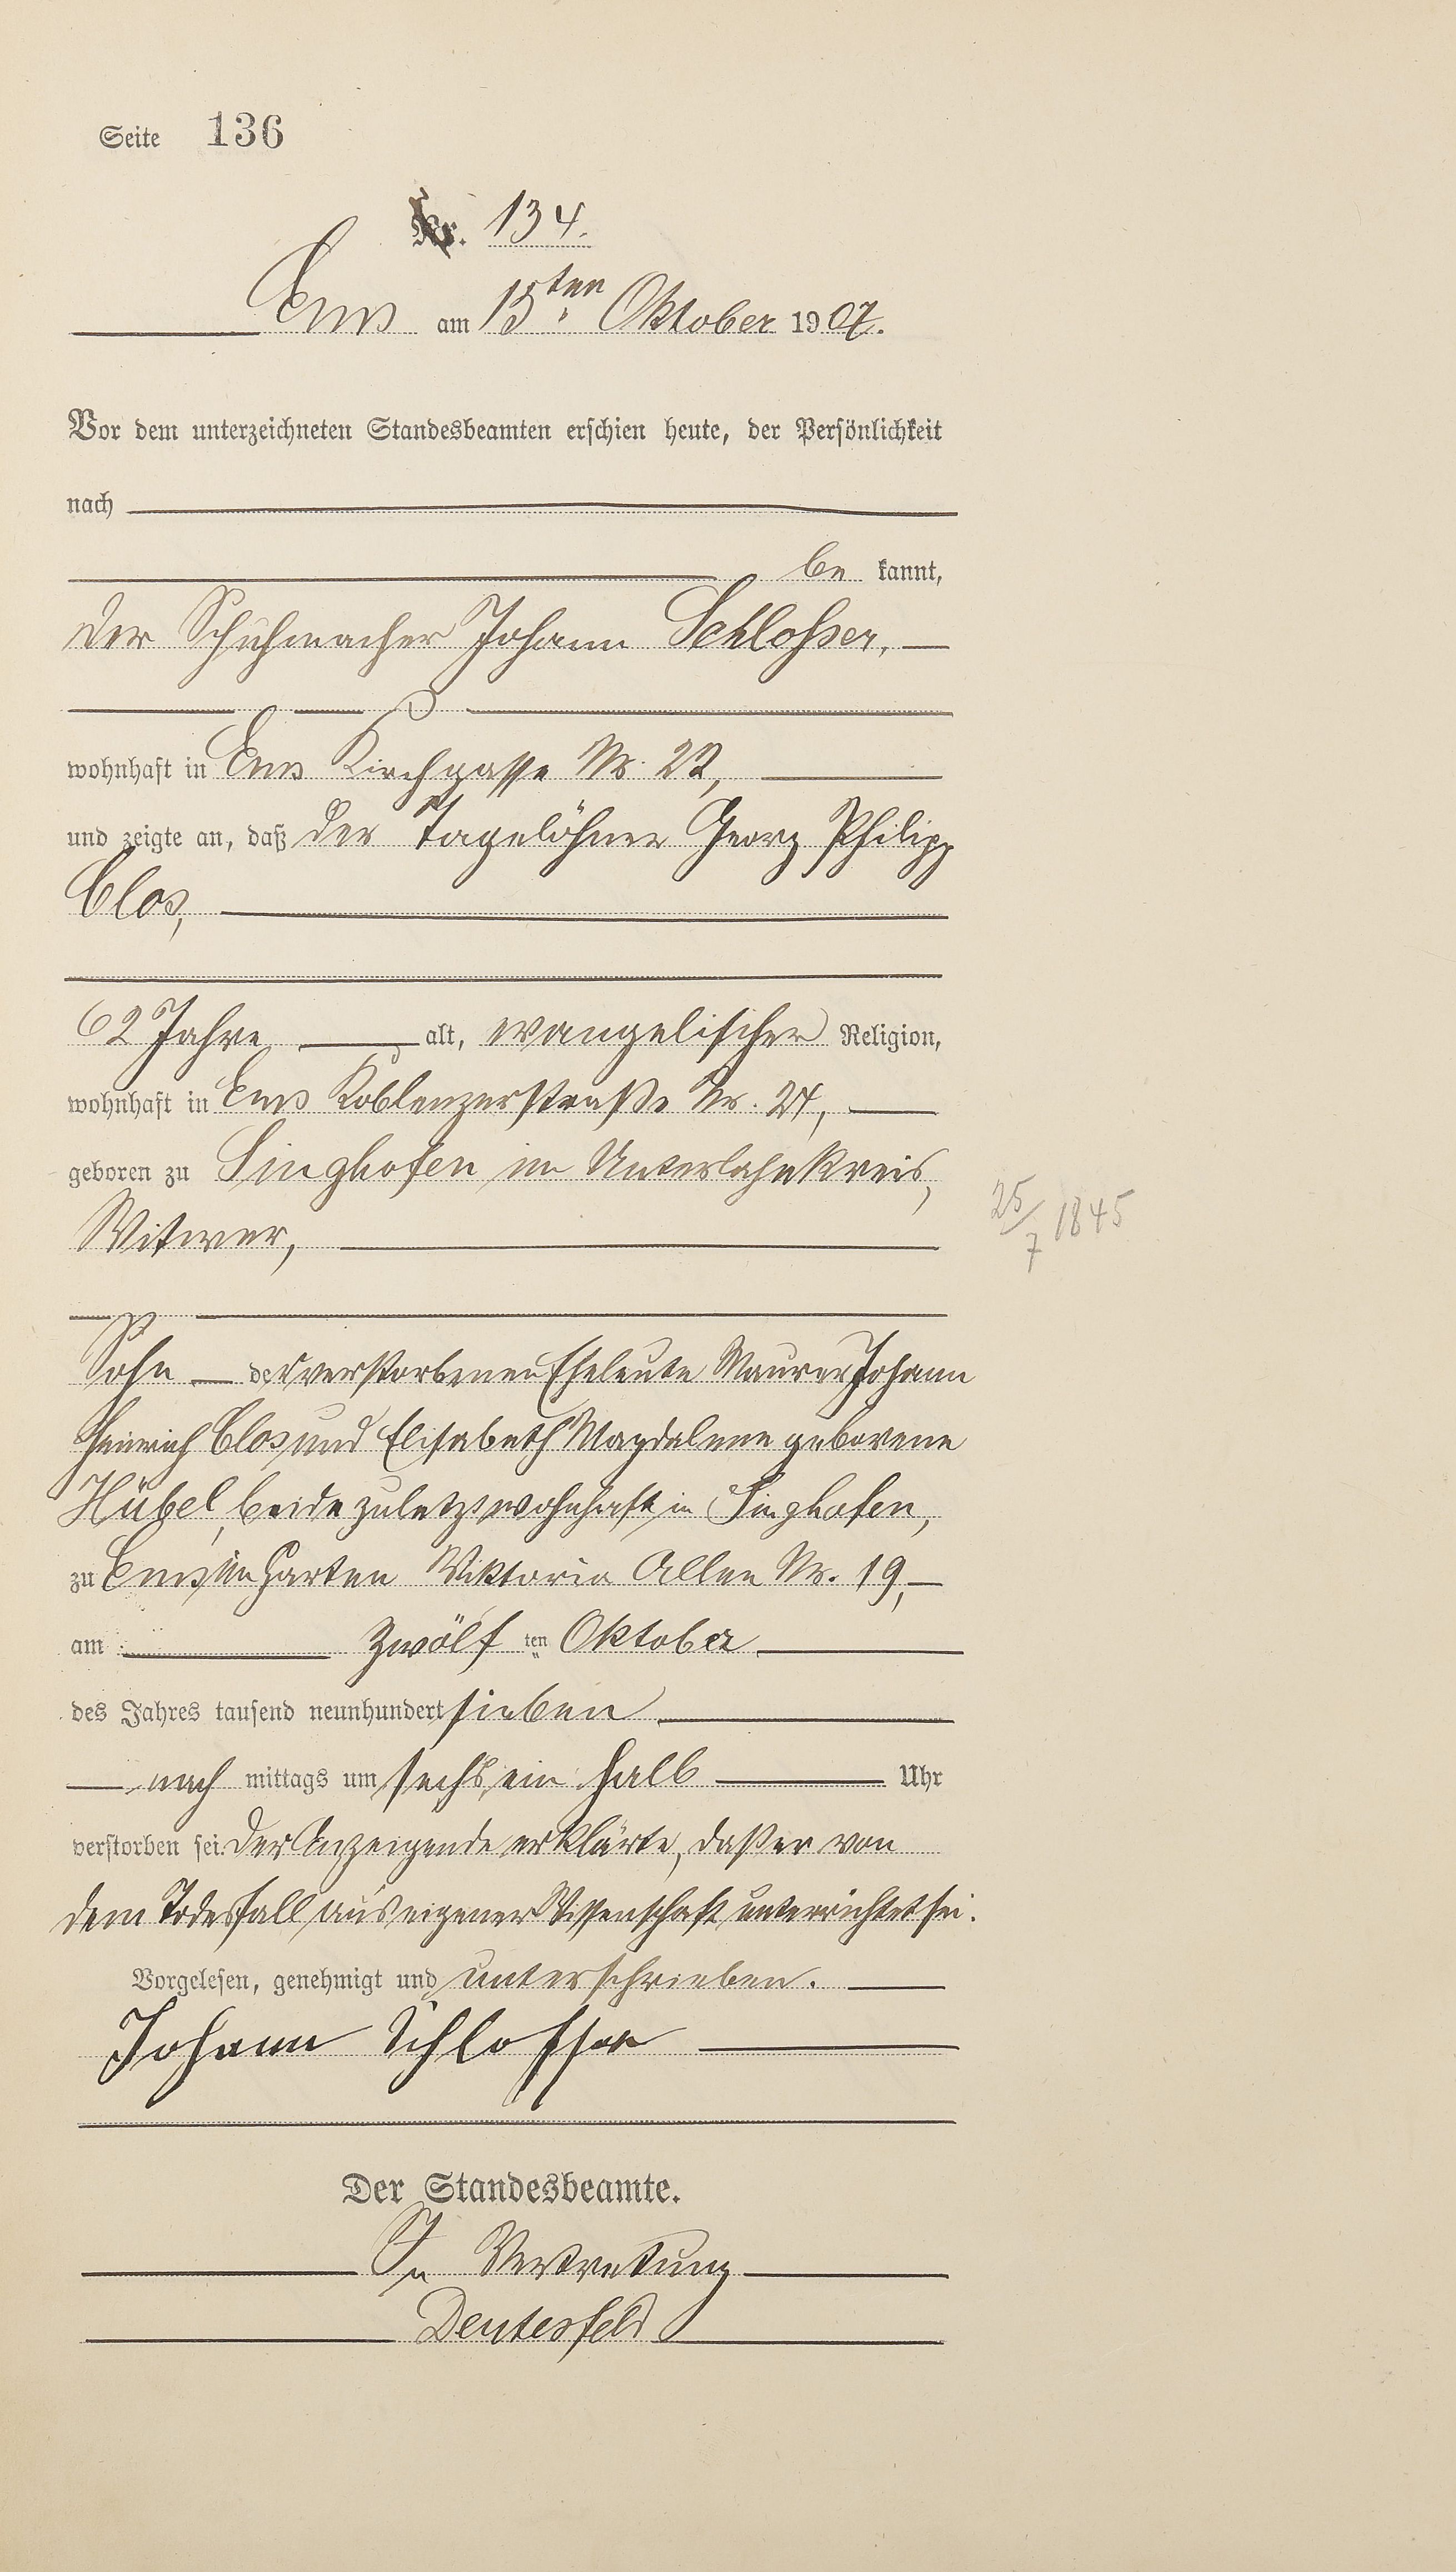 Seite 136
Nr. 134.
Ems am 15ten Oktober 1907.
Vor dem unterzeichneten Standesbeamten erschien heute, der Persönlichkeit
nach
be kannt,
der Schuhmacher Johann Schlosser,
wohnhaft in Ems Kirchgasse Nr. 22,
und zeigte an, daß der Tagelöhner Georg Philipp
Clos,
62 Jahre alt, evangelischer Religion,
wohnhaft in Ems Koblenzerstraße Nr. 24,
geboren zu Singhofen im Unterlahnkreis,
25/7 1845
Witwer,
Sohn der verstorbenen Eheleute Maurer Johann
Heinrich Clos und Elisabeth Magdalene geborene
Hübel, beide zuletzt wohnhaft in Singhofen,
zu Ems im Garten Viktoria Allee Nr. 19,
am zwölf ten Oktober
des Jahres tausend neunhundert sieben
nach mittags um sechs ein halb Uhr
verstorben sei. Der Anzeigende erklärte, daß er von
dem Todesfall aus eigener Wissenschaft unterrichtet sei.
Vorgelesen, genehmigt und unterschrieben.
Johann Schlosser
Der Standesbeamte.
In Vertretung
Deutesfeld